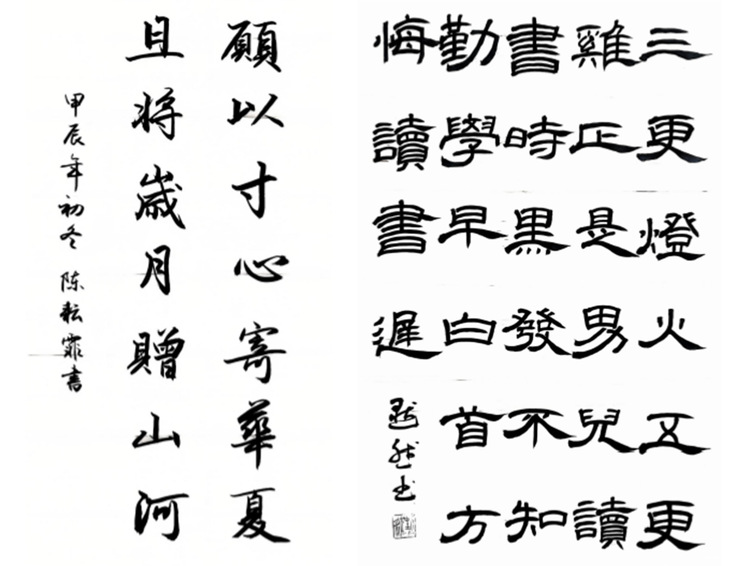 願以寸心寄華夏
且将歲月贈山河
甲辰年初冬 陈耘霏書
三更燈火五更
雞正是男兒讀
書時黑發不知
勤學早白首方
悔讀書遲
然书